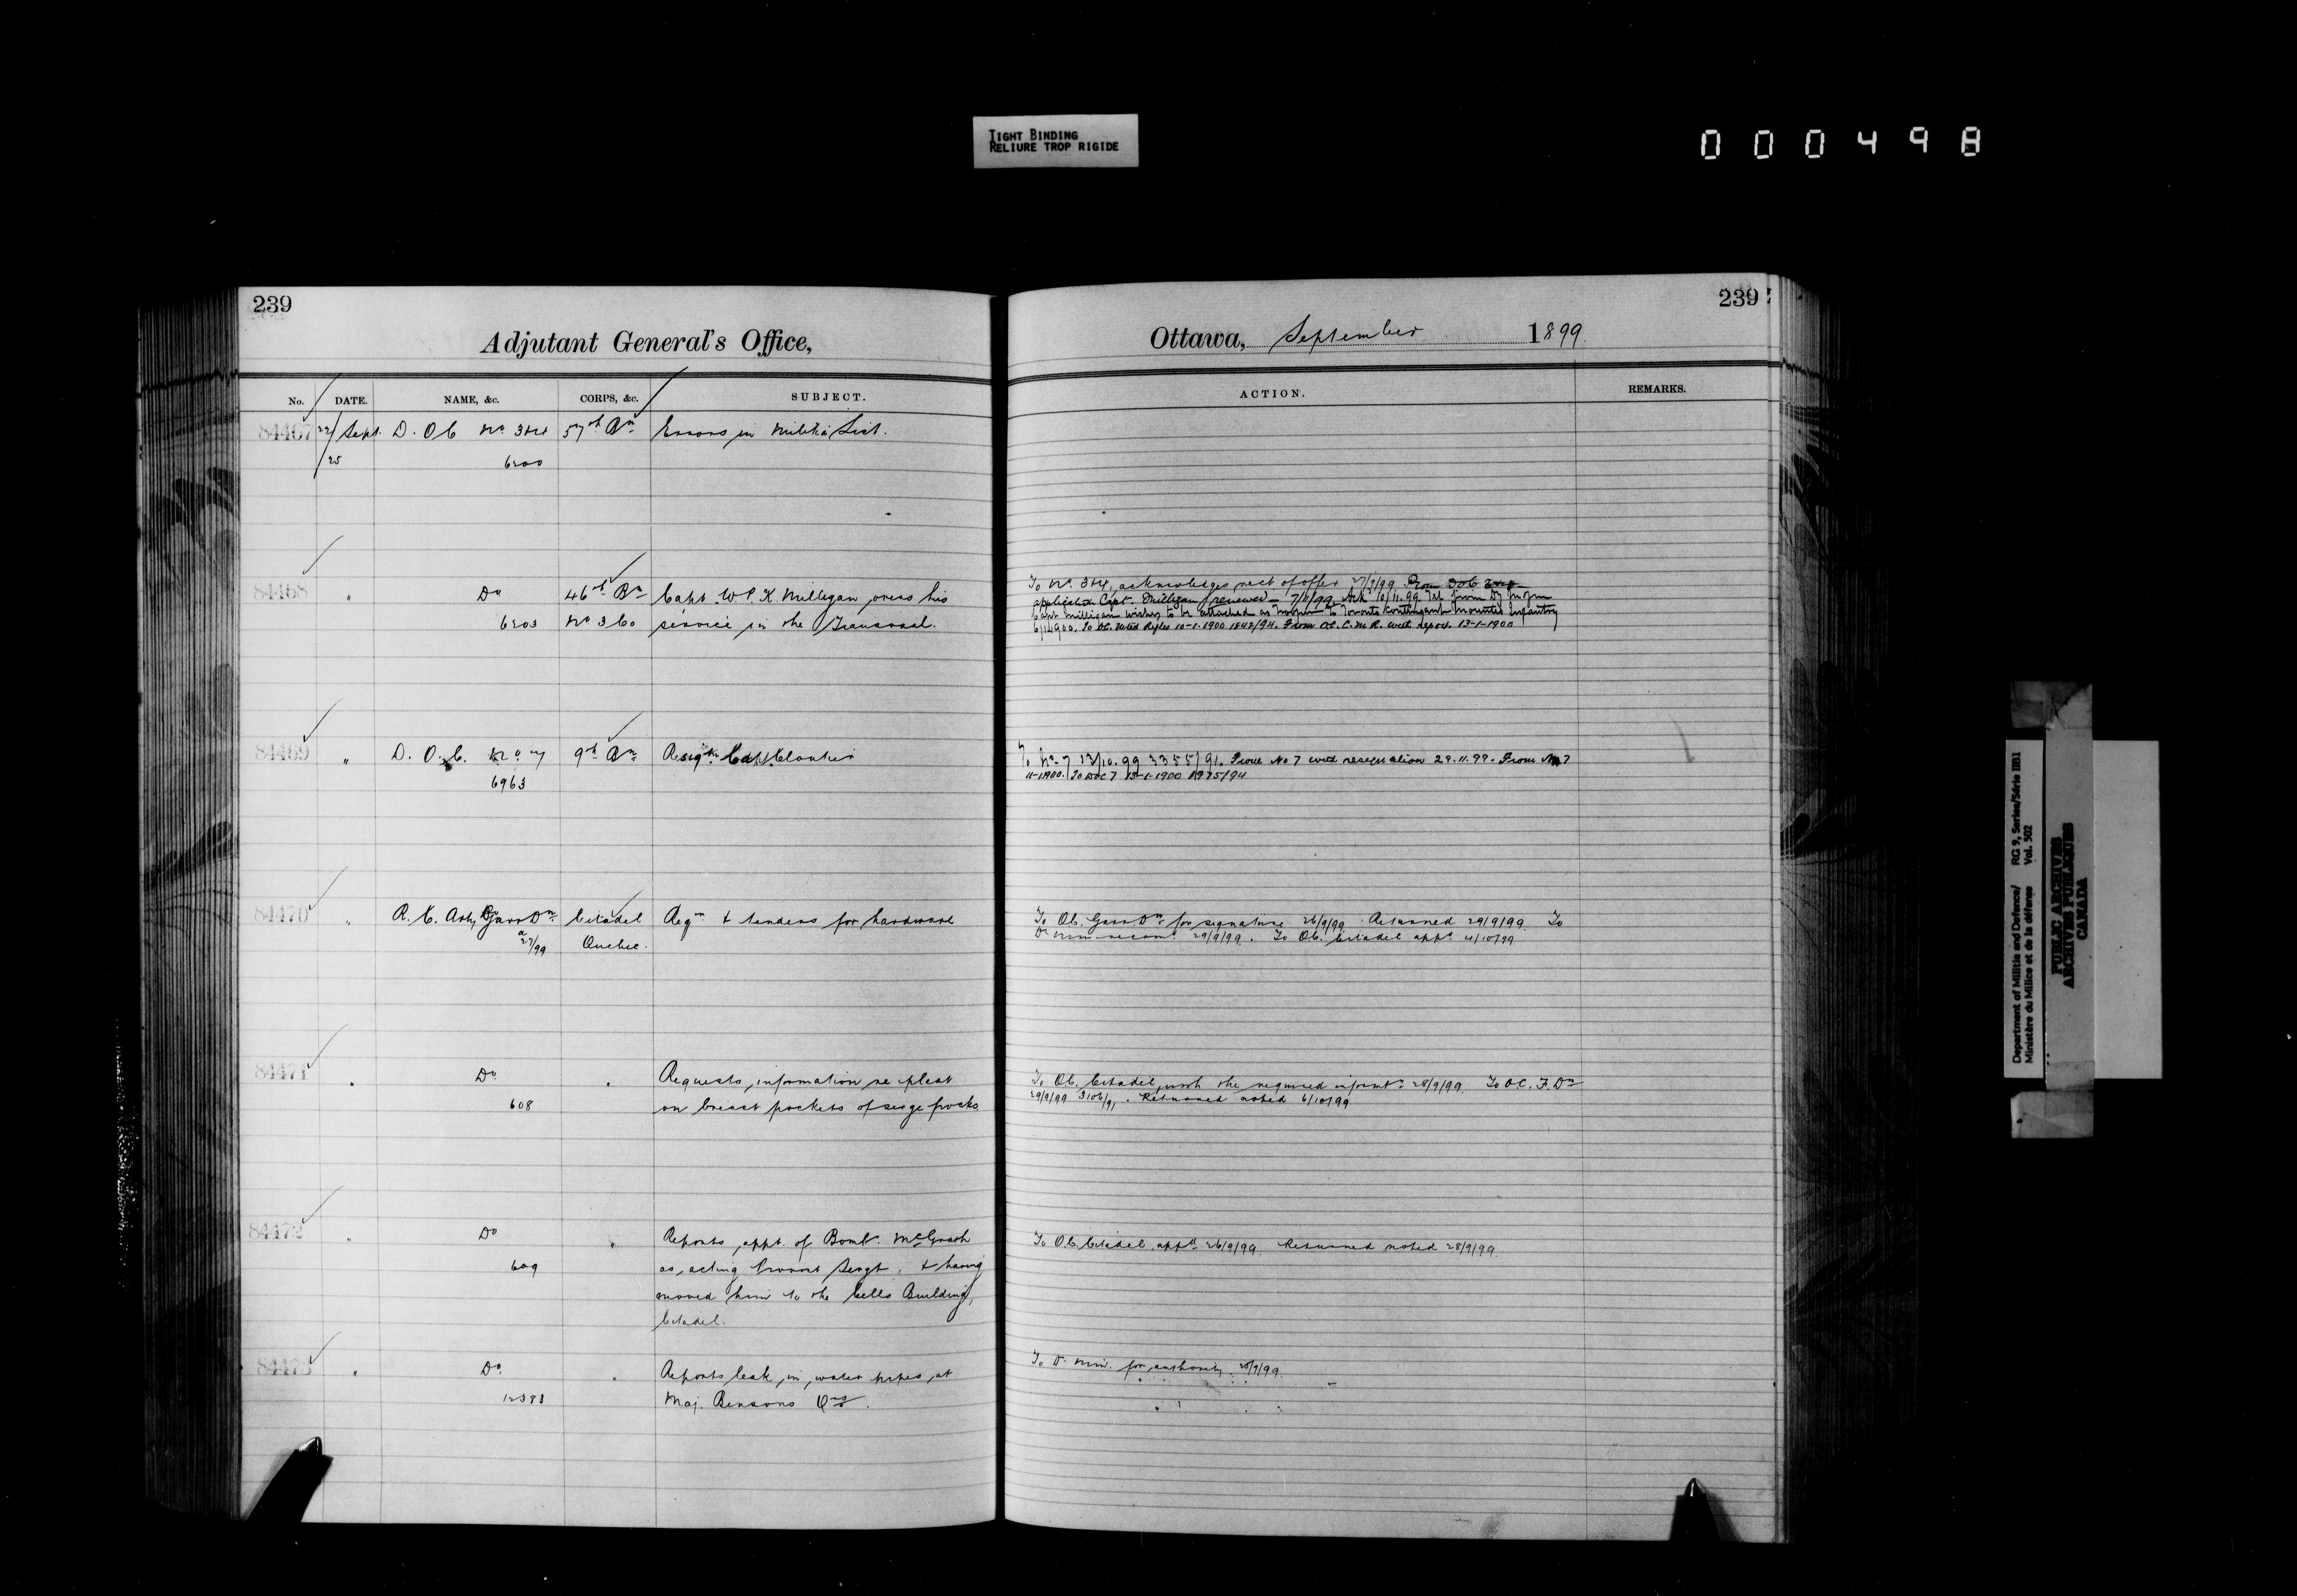 TIGHT BINDING
RELIURE TROP RIGIDE
000498
239
Adjutant General's Office,
No. DATE. NAME, &c. CORPS, &c. SUBJECT.
84467 22/ Sept. D. O C No 3&4 57th Bn Errors in Militia List.
/25 6200
84468 " Do 46th Bn Capt. W. K. Milligan gives his
6203 No 360 service in the Transvaal.
84469 " D. O. C. No 7 9th Bn Resign. Capt. Cloutier
6963
84470 " R. C. Arty Garr Dn Citadel Reqn & tenders for hardware
27/99 Quebec.
84471 " Do " Requests information re pleat
608 on breast pockets of serge frocks
84472 " Do " Reports appt. of Bombr. McGrath
609 as acting Provost Sergt. & having
moved him to the Cells Building,
Citadel.
84473 " Do " Reports leak in water pipes at
12383 Maj. Bensons Qrs.
239
Ottawa, September 1899.
ACTION. REMARKS.
To No. 3&4, acknowledges rect of offer 27/9/99 From DOC
application Capt. Milligan renewed - 7/11/99 Ack 10/11.99 Tel from
Capt Milligan wishes to be attached as to Toronto Contingent Mounted Infantry
To OC. Mted Rifles 10-1-1900 1848/94. From O.C. C.M.R. with report. 13-1-1900
To No. 7 13/10.99 3355/91. From No 7 with resignation 29.11.99. From No 7
11-1-1900. To DOC 7 15-1-1900 1975/94
To OC. Garr. Dn for signature 26/9/99. Returned 29/9/99. To
D. Min recomd 29/9/99. To OC. Citadel appd 4/10/99
To OC. Citadel, with the required informt. 28/9/99. To O.C. F. Dn
29/9/99 3106/91. Returned noted 6/10/99
To OC. Citadel appd 26/9/99. Returned noted 28/9/99.
To D. Min. for authority 28/9/99.
Department of Militia and Defence/ RG 9, Series/Série IIB1
Ministère du Milice et de la défense Vol. 502
PUBLIC ARCHIVES
ARCHIVES PUBLIQUES
CANADA